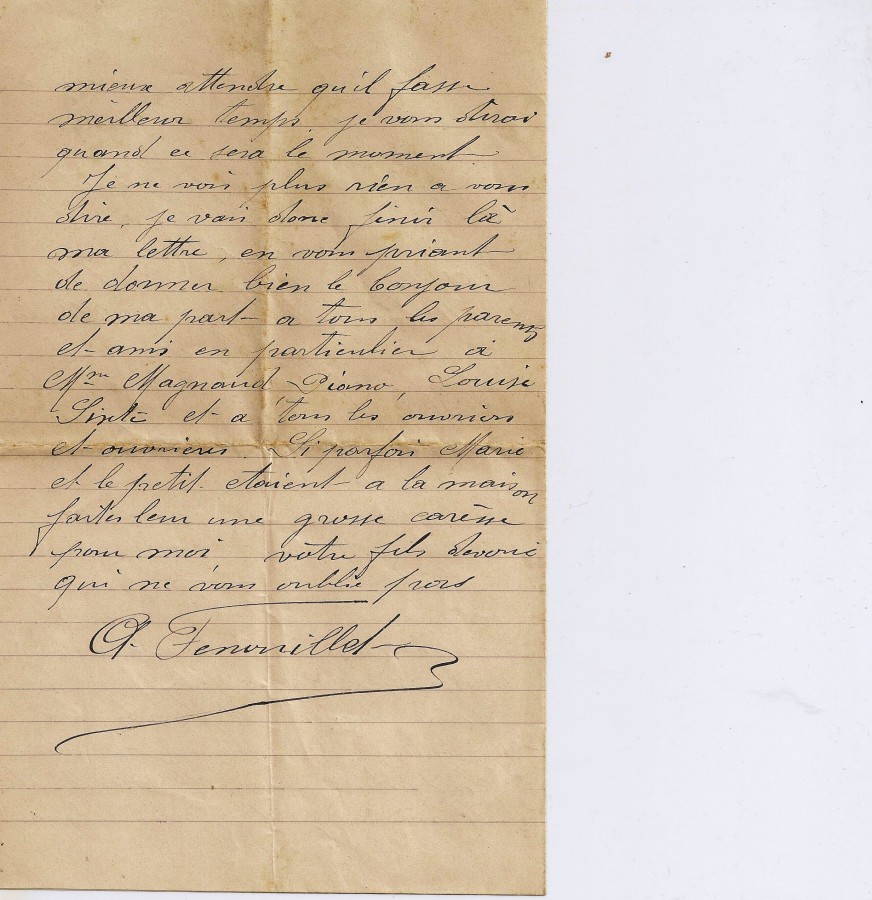 mieux attendre qu'il fasse
meilleur temps. je vous dirai
quand ce sera le moment
Je ne vois plus rien a vous
dire, je vais donc finir là
ma lettre, en vous priant
de donner bien le bonjour
de ma part a tous les parents
et amis en particulier à
Mme Magnaud Piano, Louise
et a tous les ouvriers
et ouvrieres. Si parfois Marie
et le petit etaient a la maison
faites leur une grosse carèsse
pour moi votre fils devoué
qui ne vous oublie pas
A. Fenouillet